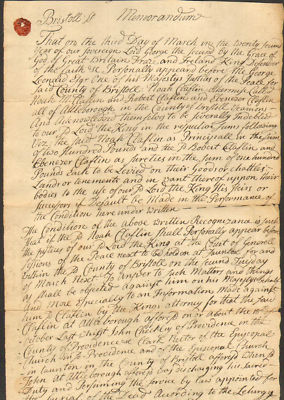 Bristoll ss Memorandum
That on the third Day of March in the twenty
year of our sovereign Lord George the second by the Grace of
God of Great Britain France and Ireland King Defender
of the Faith &c Personally appeared before me George
Leonard Esqr one of his Majestys Justices of the Peace for
said County of Bristoll Noah Claflin otherwise Called
Noah Mcclaflin and Robert Claflin and Ebenezer Claflin
all of Attleborough in the County of Bristoll
And Acknowledged themselves to be severally Indebted
to our sd Lord the King in the respective sums following
Viz: the said Noah Claflin as Principall in the sum
of Two hundred Pounds and the sd Robert Claflin and
Ebenezer Claflin as sureties in the sum of one hundred
Pounds each to be Levied on their Goods or Chattles
Lands or tenements and in want thereof upon their
bodies to the use of our sd Lord the King his Heirs or
successors if Default be Made in the Performance of
the Condition here under written
The Condition of the above written Recognizance is such
that if the sd Noah Claflin shall Personally appear before
the Justices of our sd Lord the King at the Court of Generall
sessions of the Peace next to be holden at Taunton for and
within the sd County of Bristoll on the second Tuesday
of March Next to answer to such Matters and things
as shall be objected against him on his Majestys behalf
and that Specially to an Information Made against
him sd Claflin by the Kings attorney for that the said
Claflin at Attleborough aforesd on or about the
October Last assist John Checkley of Providence in the
County of Providence &c Clark Rector of the Episcopal
Church in sd Providence and of the Episcopal Church
in Taunton in the County of Bristoll aforesd when sd
John at Attleborough aforesd was discharging his
Duty and Performing the service by law appointed for
the burial of the Dead According to the Liturgy